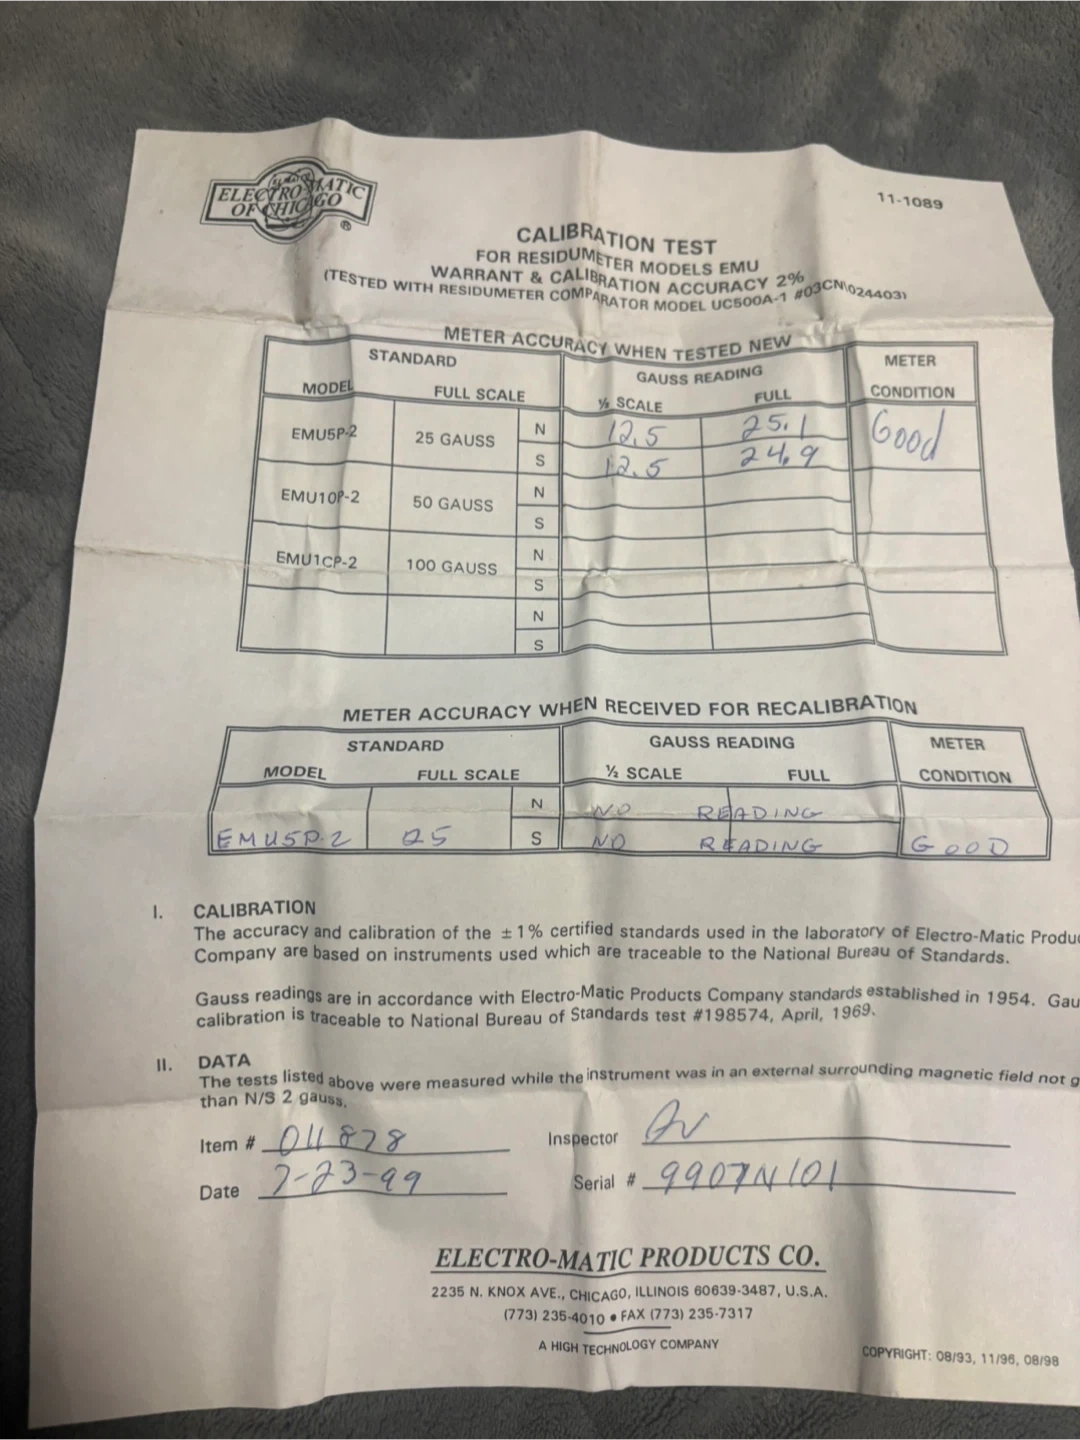 ELECTRO-MATIC
OF CHICAGO
®
11-1089
CALIBRATION TEST
FOR RESIDUMETER MODELS EMU
WARRANT & CALIBRATION ACCURACY 2%
(TESTED WITH RESIDUMETER COMPARATOR MODEL UC500A-1 #03CN\024403)
METER ACCURACY WHEN TESTED NEW
STANDARD GAUSS READING METER
MODEL FULL SCALE ½ SCALE FULL CONDITION
EMU5P-2 25 GAUSS N 12.5 25.1 Good
S 12.5 24.9
EMU10P-2 50 GAUSS N
S
EMU1CP-2 100 GAUSS N
S
N
S
METER ACCURACY WHEN RECEIVED FOR RECALIBRATION
STANDARD GAUSS READING METER
MODEL FULL SCALE ½ SCALE FULL CONDITION
N NO READING
EMU5P-2 25 S NO READING GOOD
I. CALIBRATION
The accuracy and calibration of the ±1% certified standards used in the laboratory of Electro-Matic Produc
Company are based on instruments used which are traceable to the National Bureau of Standards.
Gauss readings are in accordance with Electro-Matic Products Company standards established in 1954. Gau
calibration is traceable to National Bureau of Standards test #198574, April, 1969.
II. DATA
The tests listed above were measured while the instrument was in an external surrounding magnetic field not g
than N/S 2 gauss.
Item # 011878 Inspector
Date 7-23-99 Serial # 9907N101
ELECTRO-MATIC PRODUCTS CO.
2235 N. KNOX AVE., CHICAGO, ILLINOIS 60639-3487, U.S.A.
(773) 235-4010 • FAX (773) 235-7317
A HIGH TECHNOLOGY COMPANY
COPYRIGHT: 08/93, 11/96, 08/98